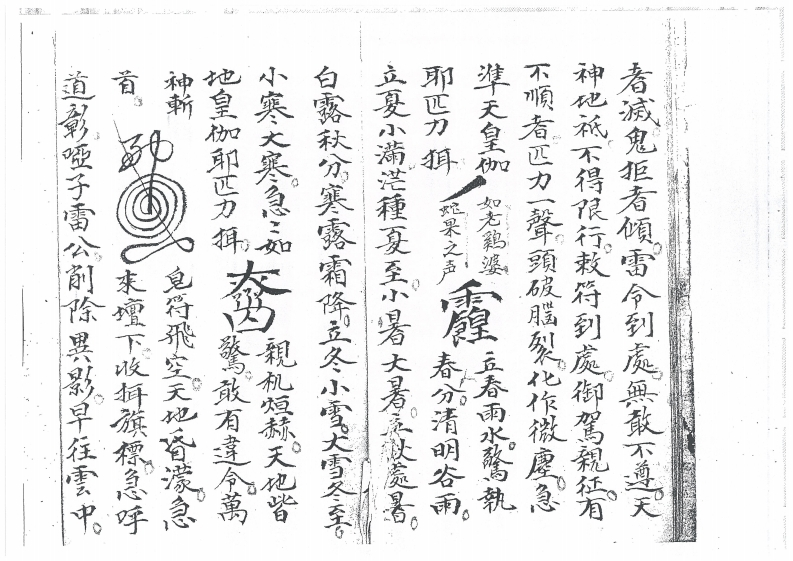 者滅鬼拒者傾雷令到處無敢不遵天
神地祇不得限行敕符到處御駕親征有
不順者匹力一聲頭破腦裂化作微塵急
準天皇伽
如老鷄婆
之声
立春雨水驚執
耶匹力揖
春分清明谷雨
立夏小滿茫種夏至小暑大暑立秋處暑
白露秋分寒露霜降立冬小雪大雪冬至
小寒大寒急〻如
親机烜赫天地皆
地皇伽耶匹力揖
驚敢有違令萬
神斬
皀符飛空天地昏濛急
首
來壇下收揖旗標急呼
道彰啞子雷公削除異影早往雲中